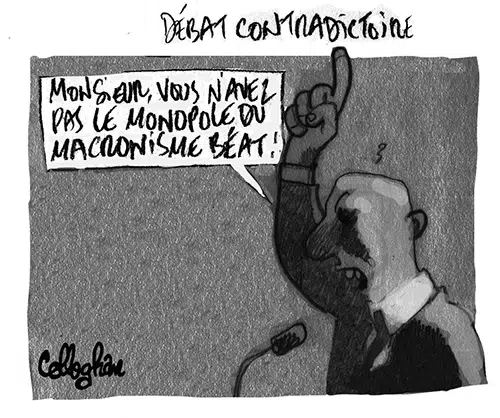 DÉBAT CONTRADICTOIRE
MONSIEUR, VOUS N'AVEZ
PAS LE MONOPOLE DU
MACRONISME BÉAT!
Calloghan